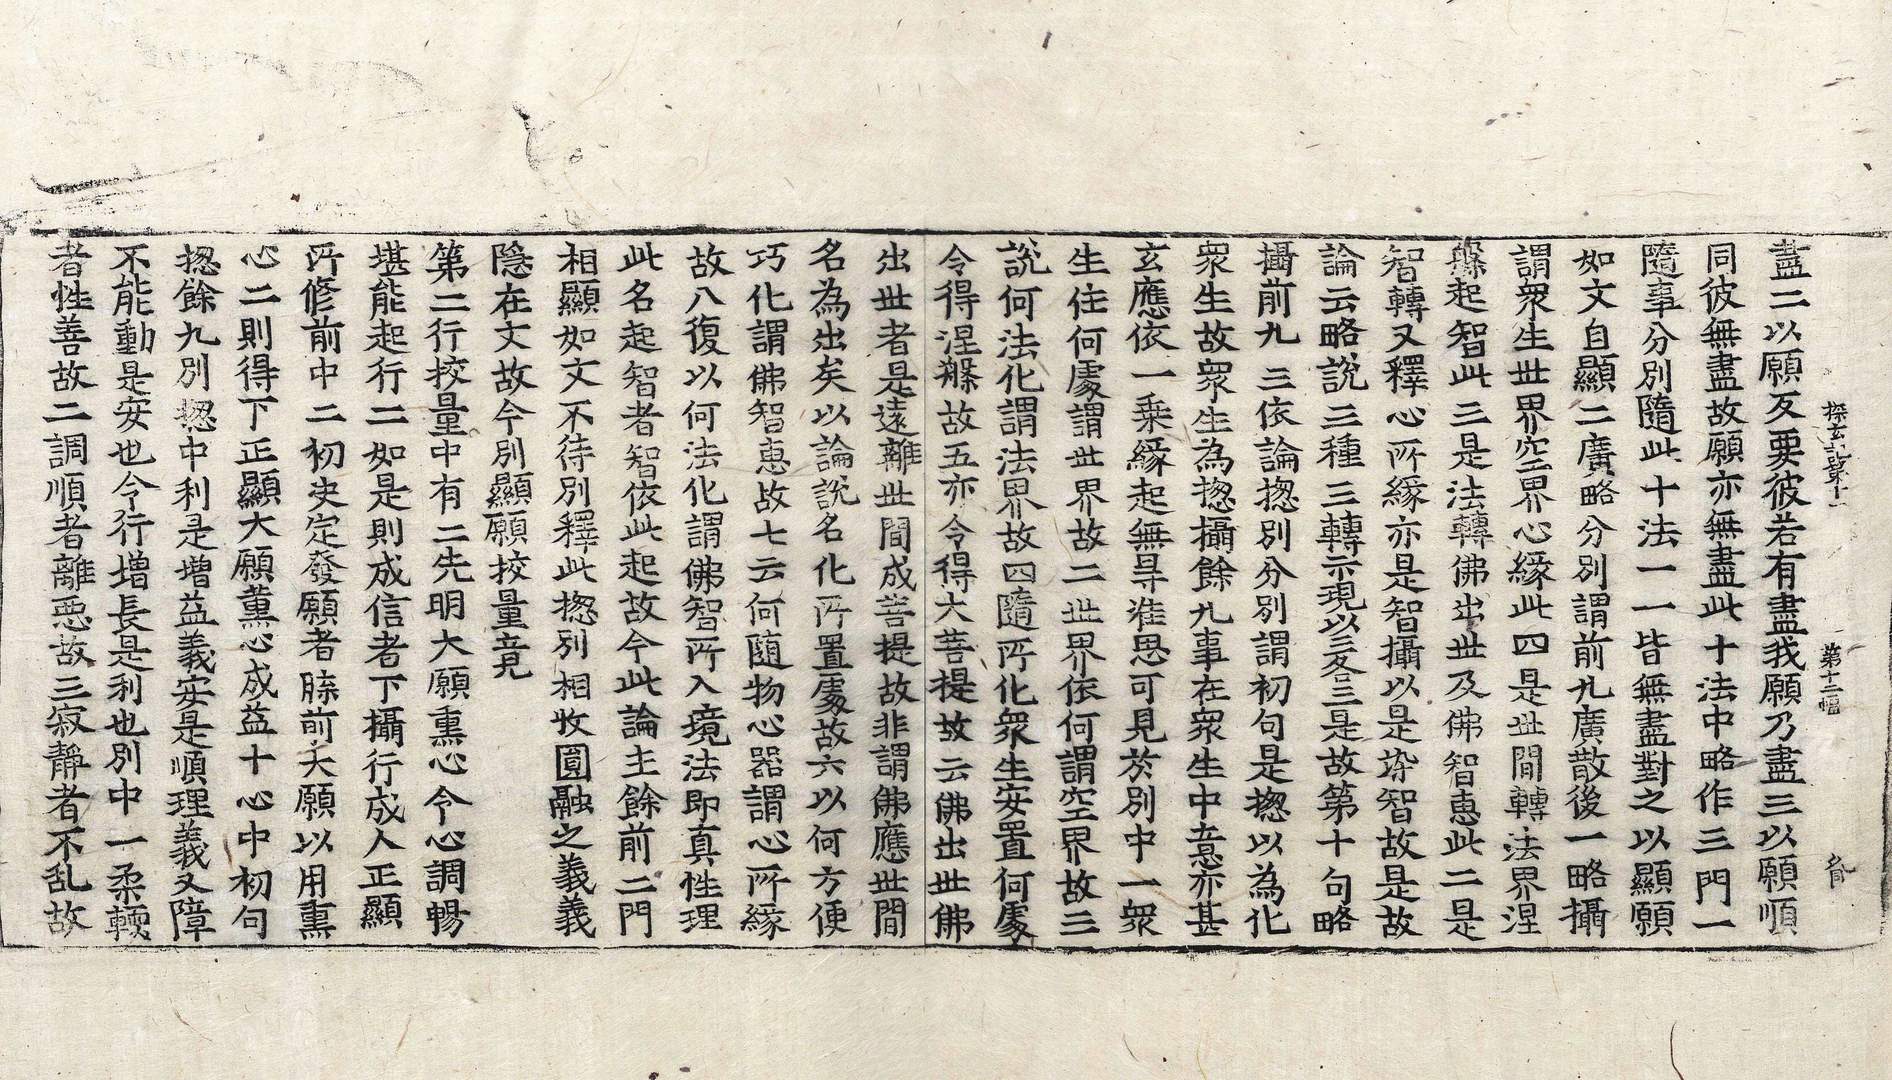 探玄記第十一 第十二幅 㒷
盡二以願反要彼若有盡我願乃盡三以願順
同彼無盡故願亦無盡此十法中略作三門一
隨事分別隨此十法一一皆無盡對之以顯願
如文自顯二廣略分別謂前九廣散後一略攝
謂衆生世界空界心緣此四是世間轉法界涅
槃起智此三是法轉佛出世及佛智恵此二是
智轉又釋心所緣亦是智攝以是染智故是故
論云略說三種三轉示現以三各三是故第十句略
攝前九三依論揔別分別謂初句是揔以為化
衆生故衆生為揔攝餘九事在衆生中意亦甚
玄應依一乗緣起無㝵准思可見於別中一衆
生住何處謂世界故二世界依何謂空界故三
說何法化謂法界故四隨所化衆生安置何處
令得涅槃故五亦令得大菩提故云佛出世佛
出世者是遠離世間成菩提故非謂佛應世間
名為出矣以論說名化所置處故六以何方便
巧化謂佛智恵故七云何随物心器謂心所緣
故八復以何法化謂佛智所入境法即真性理
此名起智者智依此起故今此論主餘前二門
相顯如文不待別釋此揔別相收圓融之義義
隐在文故今別顯願挍量竟
第二行挍量中有二先明大願熏心令心調暢
堪能起行二如是則成信者下攝行成人正顯
所修前中二初决定發願者牒前大願以用熏
心二則得下正顯大願薫心成益十心中初句
揔餘九別揔中利是增益義安是順理義又障
不能動是安也令行增長是利也別中一柔輭
者性善故二調順者離惡故三寂靜者不乱故